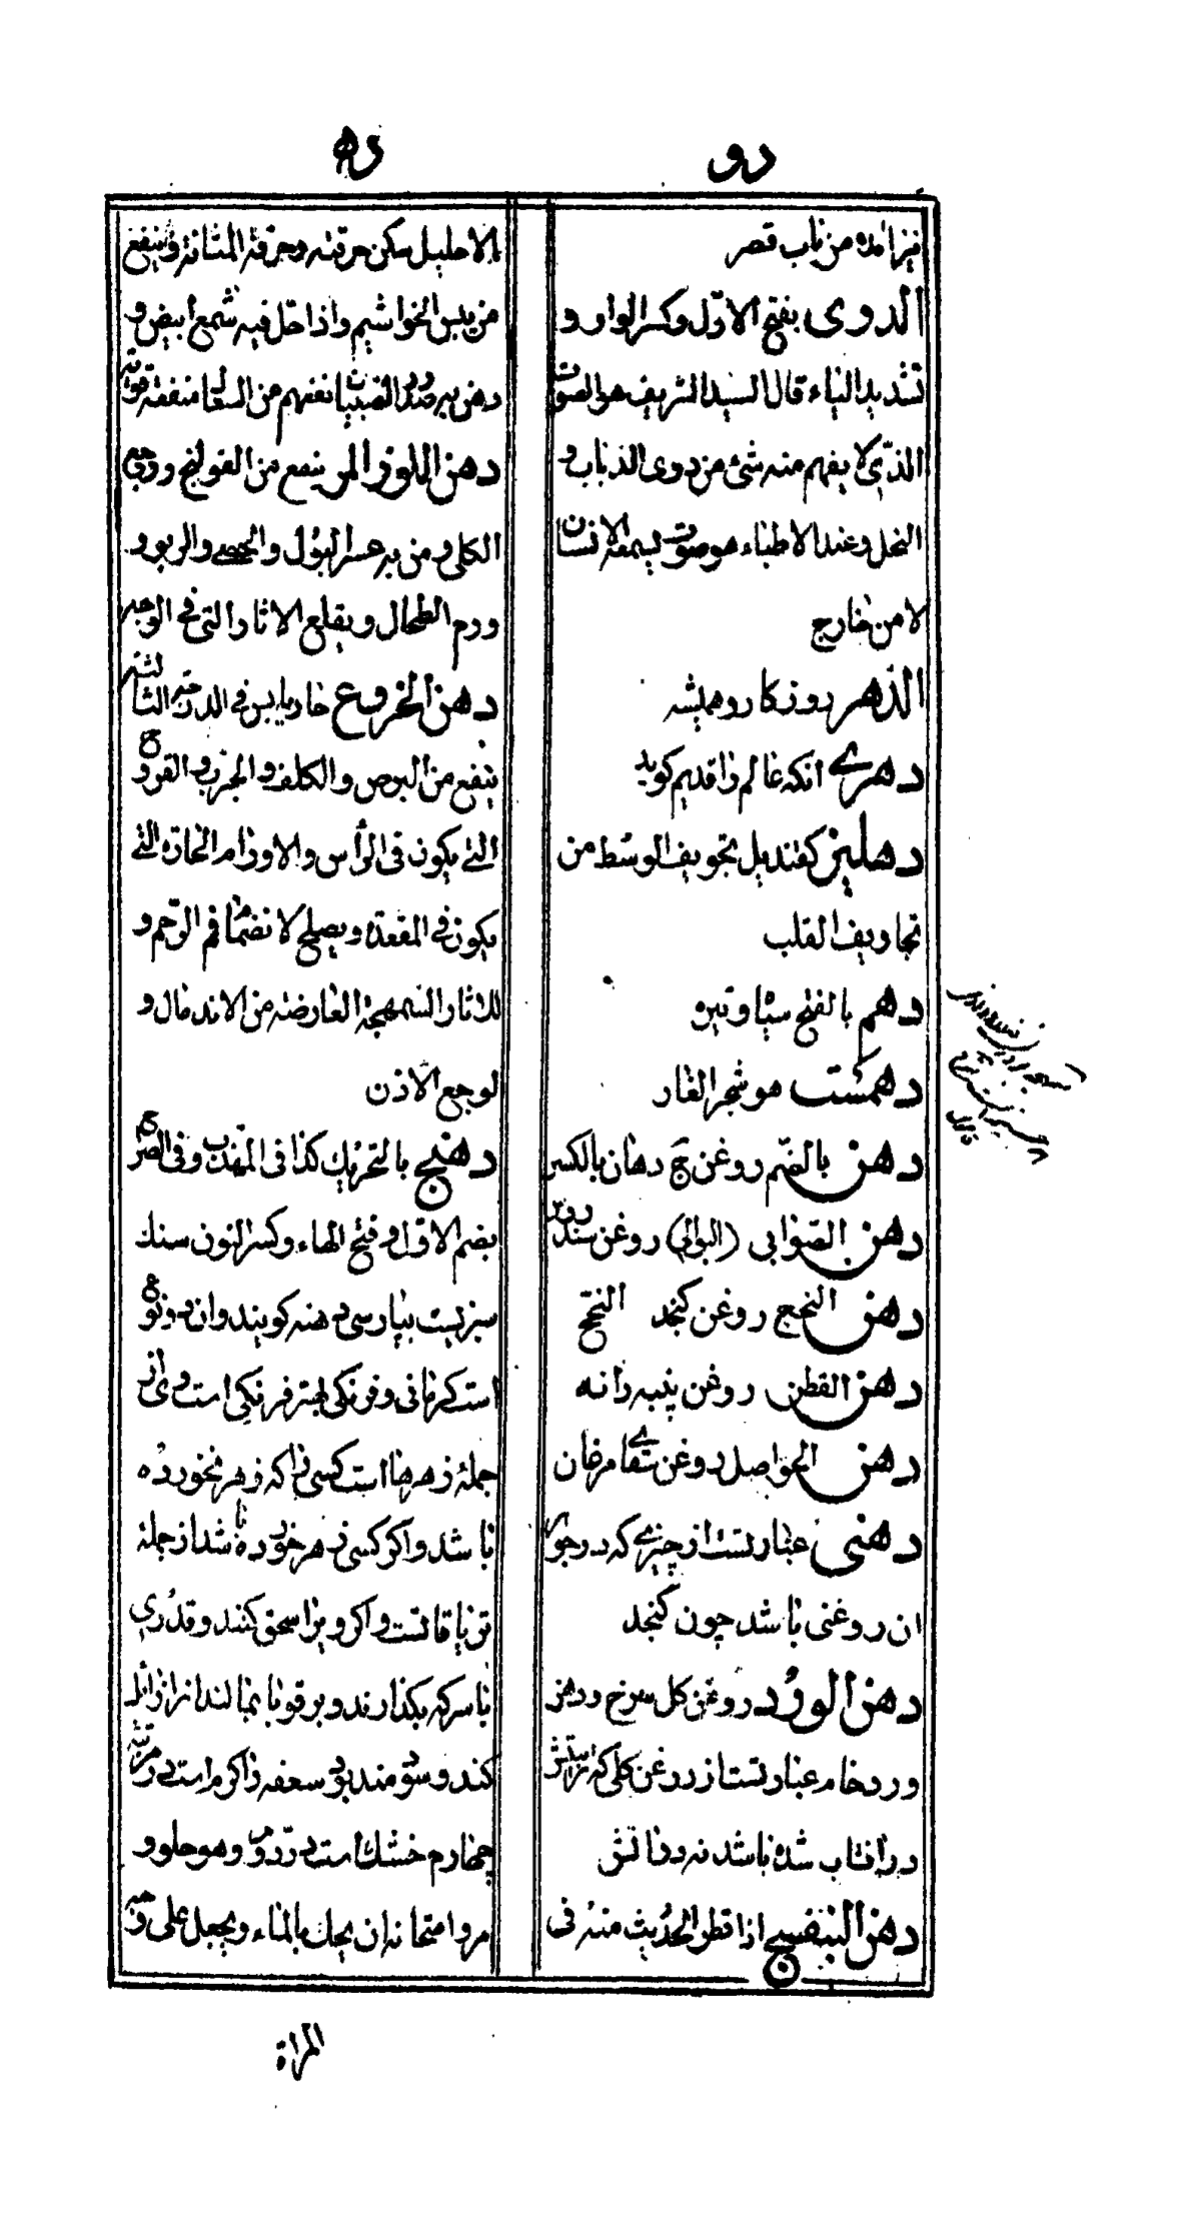 دو
ده
نیز آمده من باب قصر
الدوی بفتح الاول و کسر الواو و
تشدید الیاء قال السید الشریف هو الصوت
الذی لا یفهم منه شئ من دوی الذباب و
النحل و عند الاطباء هو صوت یسمعه الانسان
لا من خارج
الدهر روزکار و همیشه
دهری انکه عالم را قدیم کوید
دهلیز کقندیل تجویف الوسط من
تجاویف القلب
دهم بالفتح سیاه و تیره
دهمست هو شجر الغار
دهن بالضم روغن ج دهان بالکسر
دهن الصوابی (البوالی) روغن
دهن النحج روغن کنجد
دهن القطن روغن پنبه دانه
دهن الحواصل روغن سقا مرغان
دهنی عبارتست از چیزی که در جوف
ان روغنی باشد چون کنجد
دهن الورد روغن کل سرخ و دهن
ورد خام عبارتست از روغن کلی که
در آفتاب شده باشد نه در آتش
دهن البنفسج اذا قطر الحدیث منه فی
الاحلیل سکن حرقته و حرقة المثانة و ینفع
من یبس الخواشیم و اذا حل فیه شمع ابیض و
دهن به صدر الصبیان نفعهم من السعال منفعة قویة
دهن اللوز المر ینفع من القولنج و وجع
الکلی و من به عسر البول و الحصی و الربو و
ورم الطحال و یقلع الاثار التی فی الوجه
دهن الخروع حار یابس فی الدرجة الثالثة
ینفع من البرص و الکلف و الجرب و القروح
التی یکون فی الرأس و الاورام الحارة التی
یکون فی المقعدة و یصلح لانضمام فم الرحم و
للاثار السمهجة العارضة من الاندمال و
لوجع الاذن
دهنج بالتحریک کذا فی المهذب و فی الصراح
بضم الاول و فتح الهاء و کسر النون سنک
سبزیست بپارسی دهنه کویند و ان دو نوع
است کرمانی و فرنکی بهتر فرنکی است و
جملهٔ زهرها است کسی را که زهر نخورده
باشد و اکر کسی زهر خورده باشد از جملهٔ
تریاقاتست و اکر ویرا سحق کنند و قدری
با سرکه بکذارند و بر قوبا بمالند انرا زائل
کند و سودمند بود سعفه را کرم است در مرتبه
چهارم خشک است در دوم و هو حلو و
مر و امتحانه ان یحک بالماء و یجعل علی
المرأة